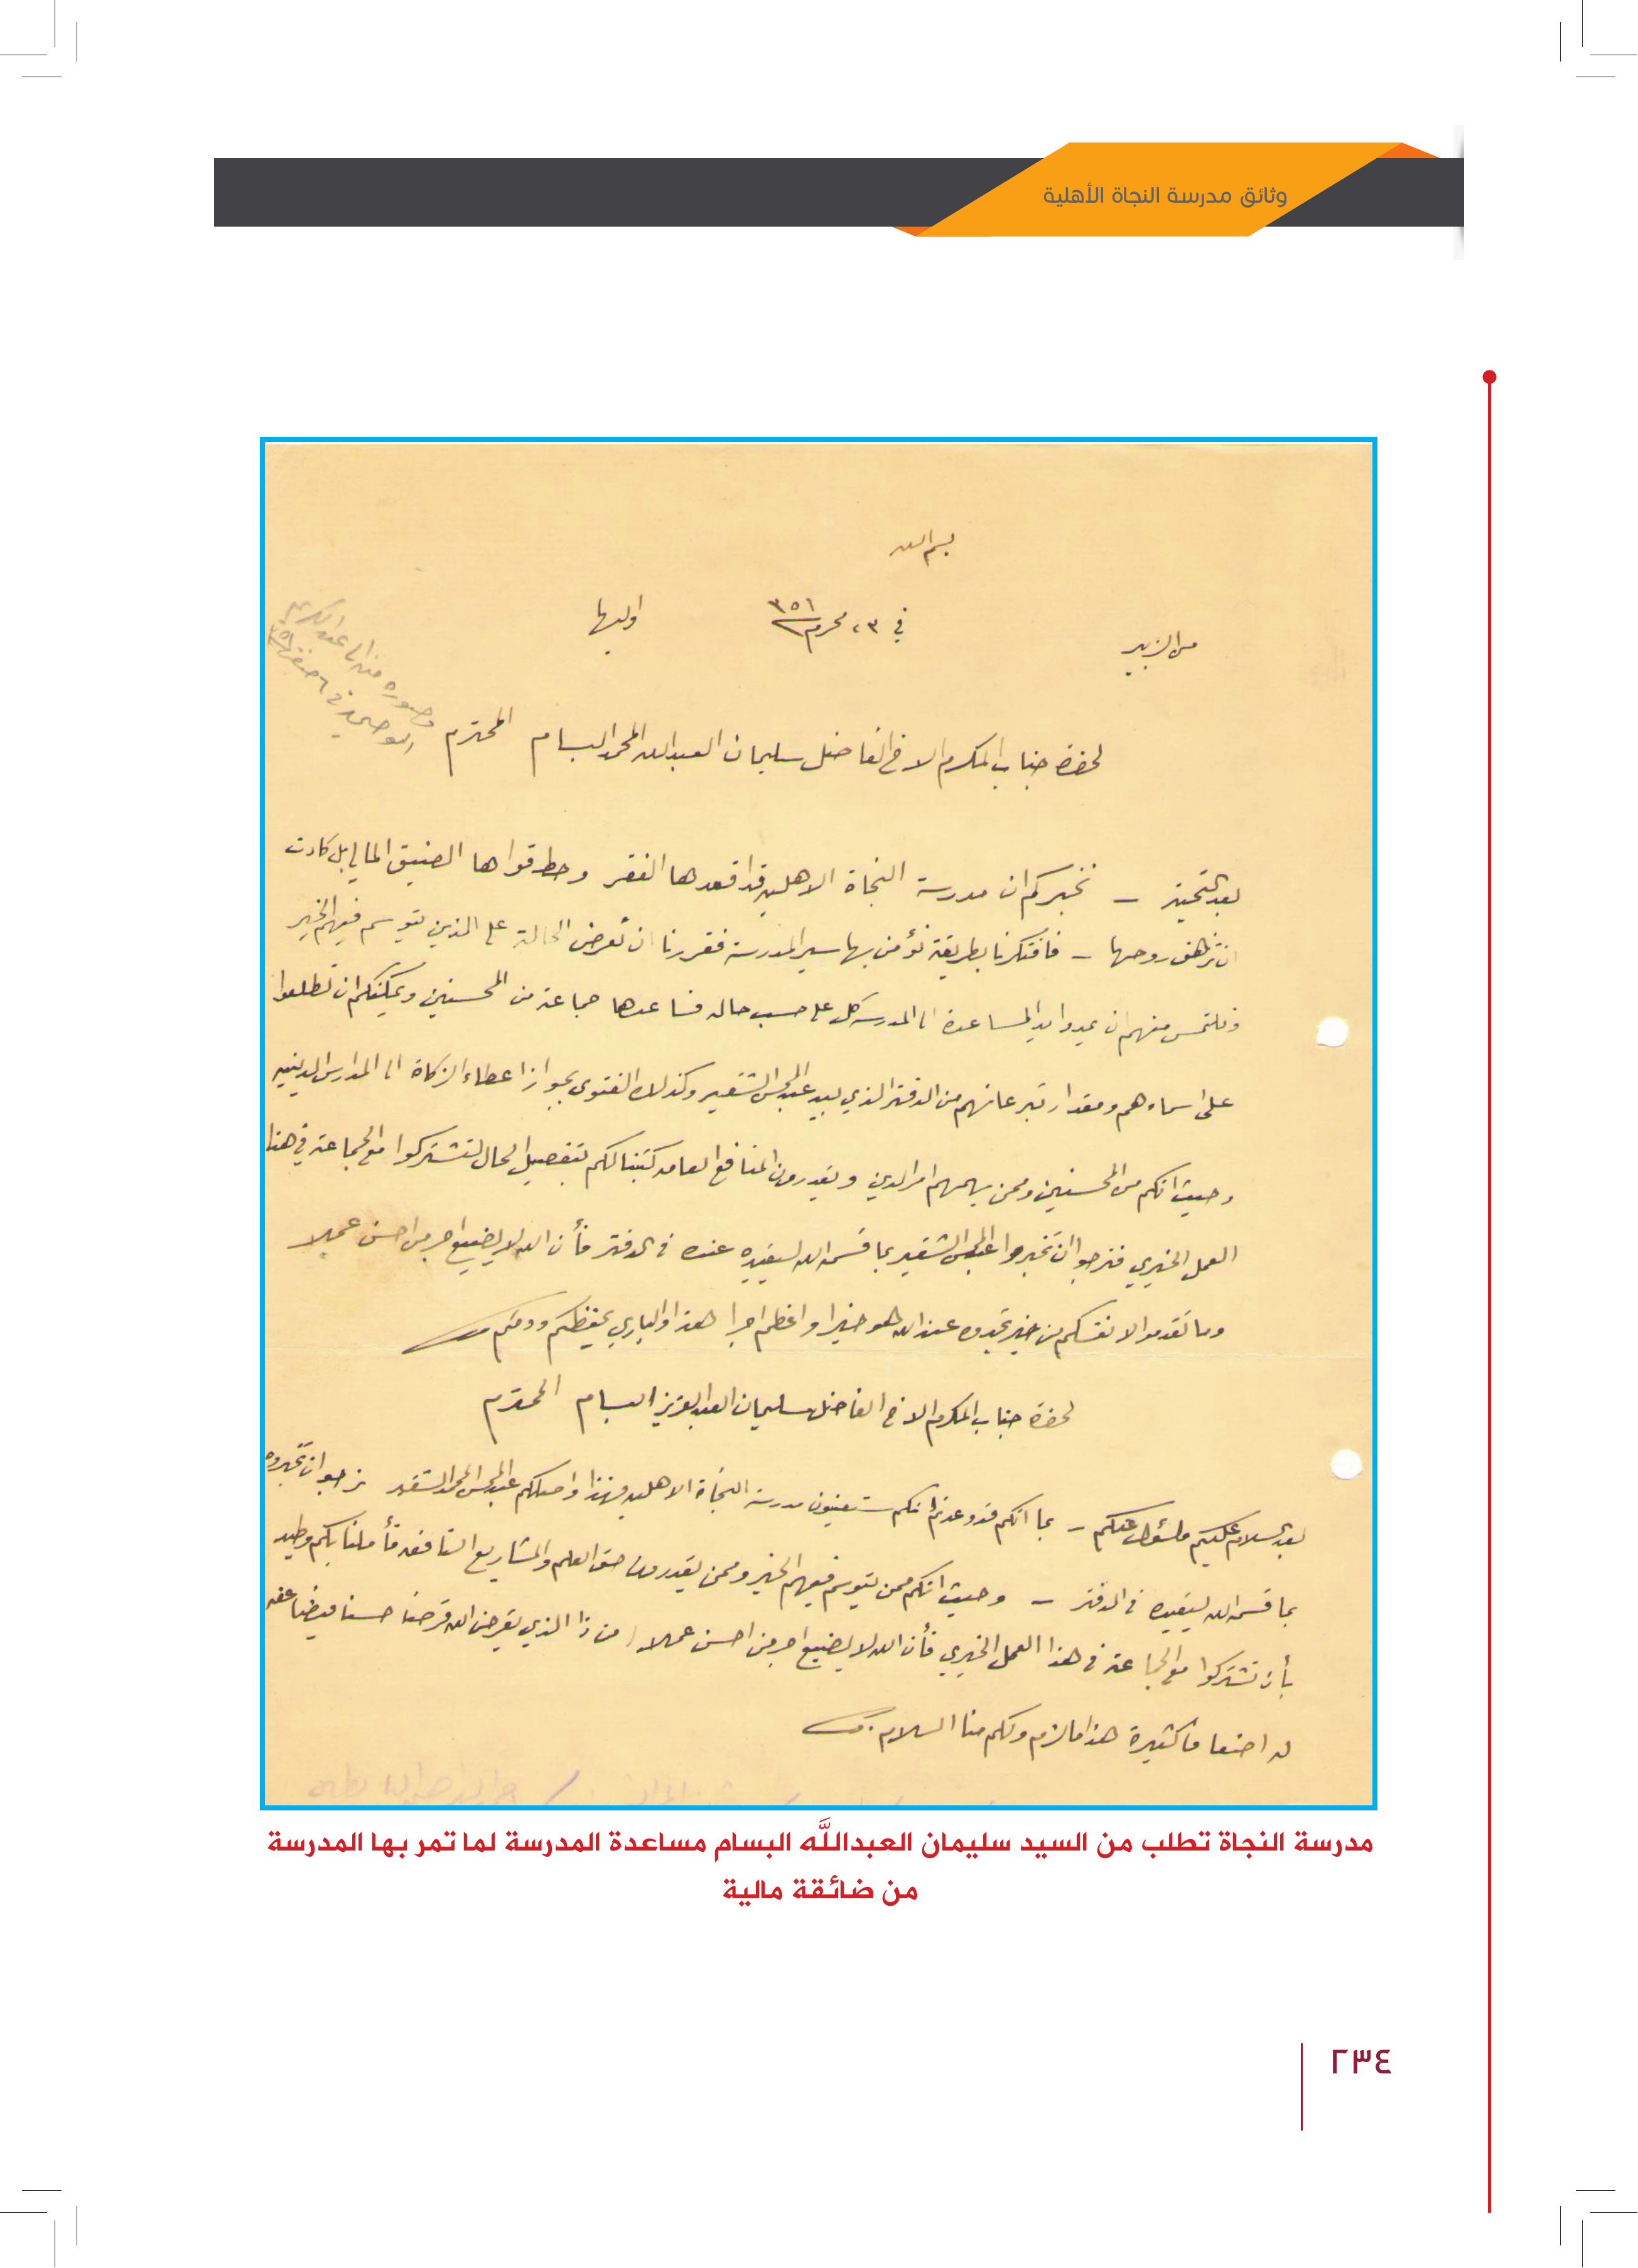 وثائق مدرسة النجاة الأهلية
بسم الله
من الزبير في ٢٣ محرم ٣٥١ اوليها
وصوره منه الى عبدالكريم
لحضرة جناب المكرم الاخ الفاضل سليمان العبدالله المحمد البسام المحترم
بعد التحية – نخبركم ان مدرسة النجاة الاهليه قد اقعدها الفقر وحط قواها الضيق المالي بل كادت
ان تزهق روحها – فافتكرنا بطريقة نؤمن بها سير المدرسة فقررنا ان نعرض الحالة على الذين يتوسم فيهم الخير
ونلتمس منهم ان يمدوا يد المساعدة الى المدرسه كل على حسب حاله فساعدها جماعة من المحسنين ويمكنكم ان تطلعوا
على اسماءهم ومقدار تبرعاتهم من الدفتر الذي بيد عبدالمحسن الشقير وكذلك الفتوى بجواز اعطاء الزكاة الى المدارس الدينيه
وحيث انكم من المحسنين وممن يهمهم امر الدين ويقدرون المنافع العامه كتبنا لكم بتفصيل الحال لتشتركوا مع الجماعة في هذا
العمل الخيري فنرجوا ان تخبروا عبدالمحسن الشقير بما قسمه الله ليقيده عنده في الدفتر فأن الله لا يضيع اجر من احسن عملا
وما تقدموا لانفسكم من خير تجدوه عند الله هو خيرا واعظم اجرا هذا والباري يحفظكم ودمتم
لحضرة جناب المكرم الاخ الفاضل سليمان العبدالعزيز البسام المحترم
بعد السلام عليكم والسؤال عنكم – بما انكم قد وعدتم انكم ستعينون مدرسة النجاة الاهليه فهذا واصلكم عبدالمحسن المحمد الشقير نرجوا ان تخبروه
بما قسمه الله ليقيده في الدفتر – وحيث انكم ممن يتوسم فيهم الخير وممن يقدرون حق العلم والمشاريع النافعه فأملنا بكم وطيد
بأن تشتركوا مع الجماعة في هذا العمل الخيري فأن الله لا يضيع اجر من احسن عملا ( من ذا الذي يقرض الله قرضا حسنا فيضاعفه
له اضعافا كثيرة هذا ما لزم ولكم منا السلام
مدرسة النجاة تطلب من السيد سليمان العبداللَّه البسام مساعدة المدرسة لما تمر بها المدرسة
من ضائقة مالية
٢٣٤